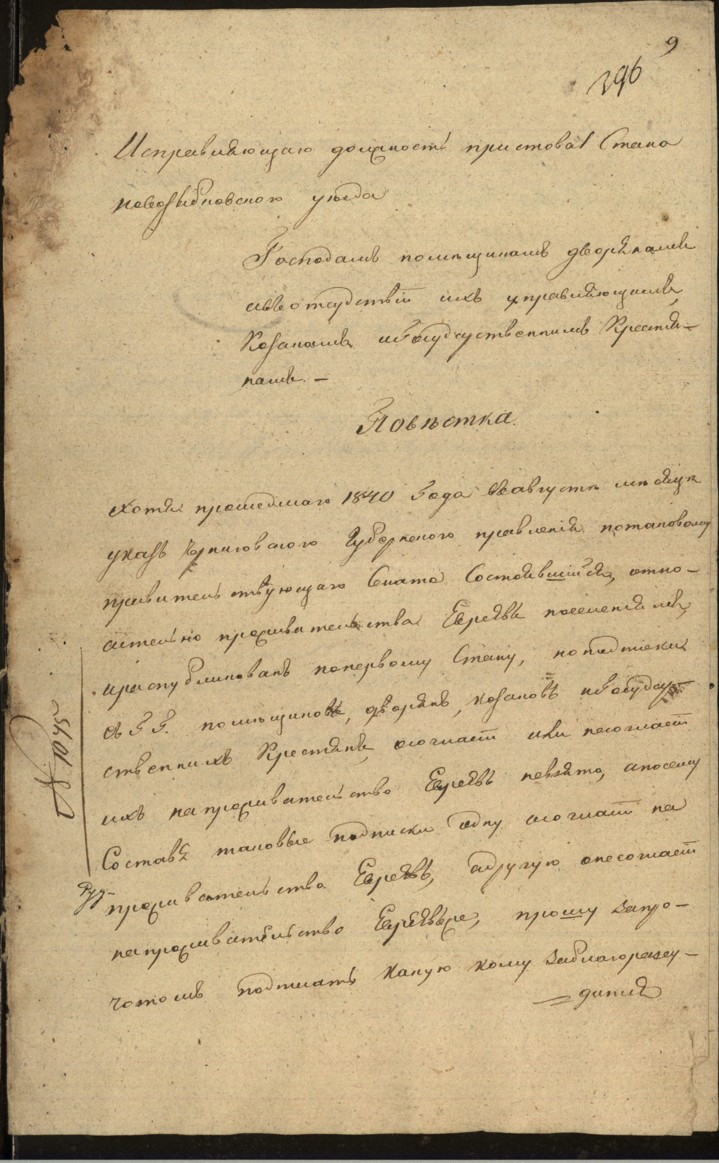 9
396
Исправляющаго должность пристова 1 Стана
новозыбковского уѣзда
Господамъ помѣщикамъ дворянамъ
авъ отсудствіи ихъ управляющимъ,
Козакамъ и Государственнимъ Крестя-
намъ. –
Повѣстка.
Хотя прошедшаго 1840 Года въ августѣ мѣсяцѣ
указъ Черниговского Губернского правленія потаковому
правительствующаго Сената Состоявшійся, отно-
сительно проживательства Евреявъ поселеніямъ
и распубликованъ попервому Стану, но подписки
съ Г. Г. помѣщиковъ, дворянъ, козаковъ и Государ-
ственнихъ Крестянъ, осогласіи или несогласіи
ихъ напроживательство Евреявъ невзято, апосему
Составя таковые подписки одну осогласіи на
проживательство Евреявъ, адругую онесогласіи
напроживательство Евреявъже, прошу запро-
чотомъ подписать какую кому заблагоразсу-
дится
№ 1045